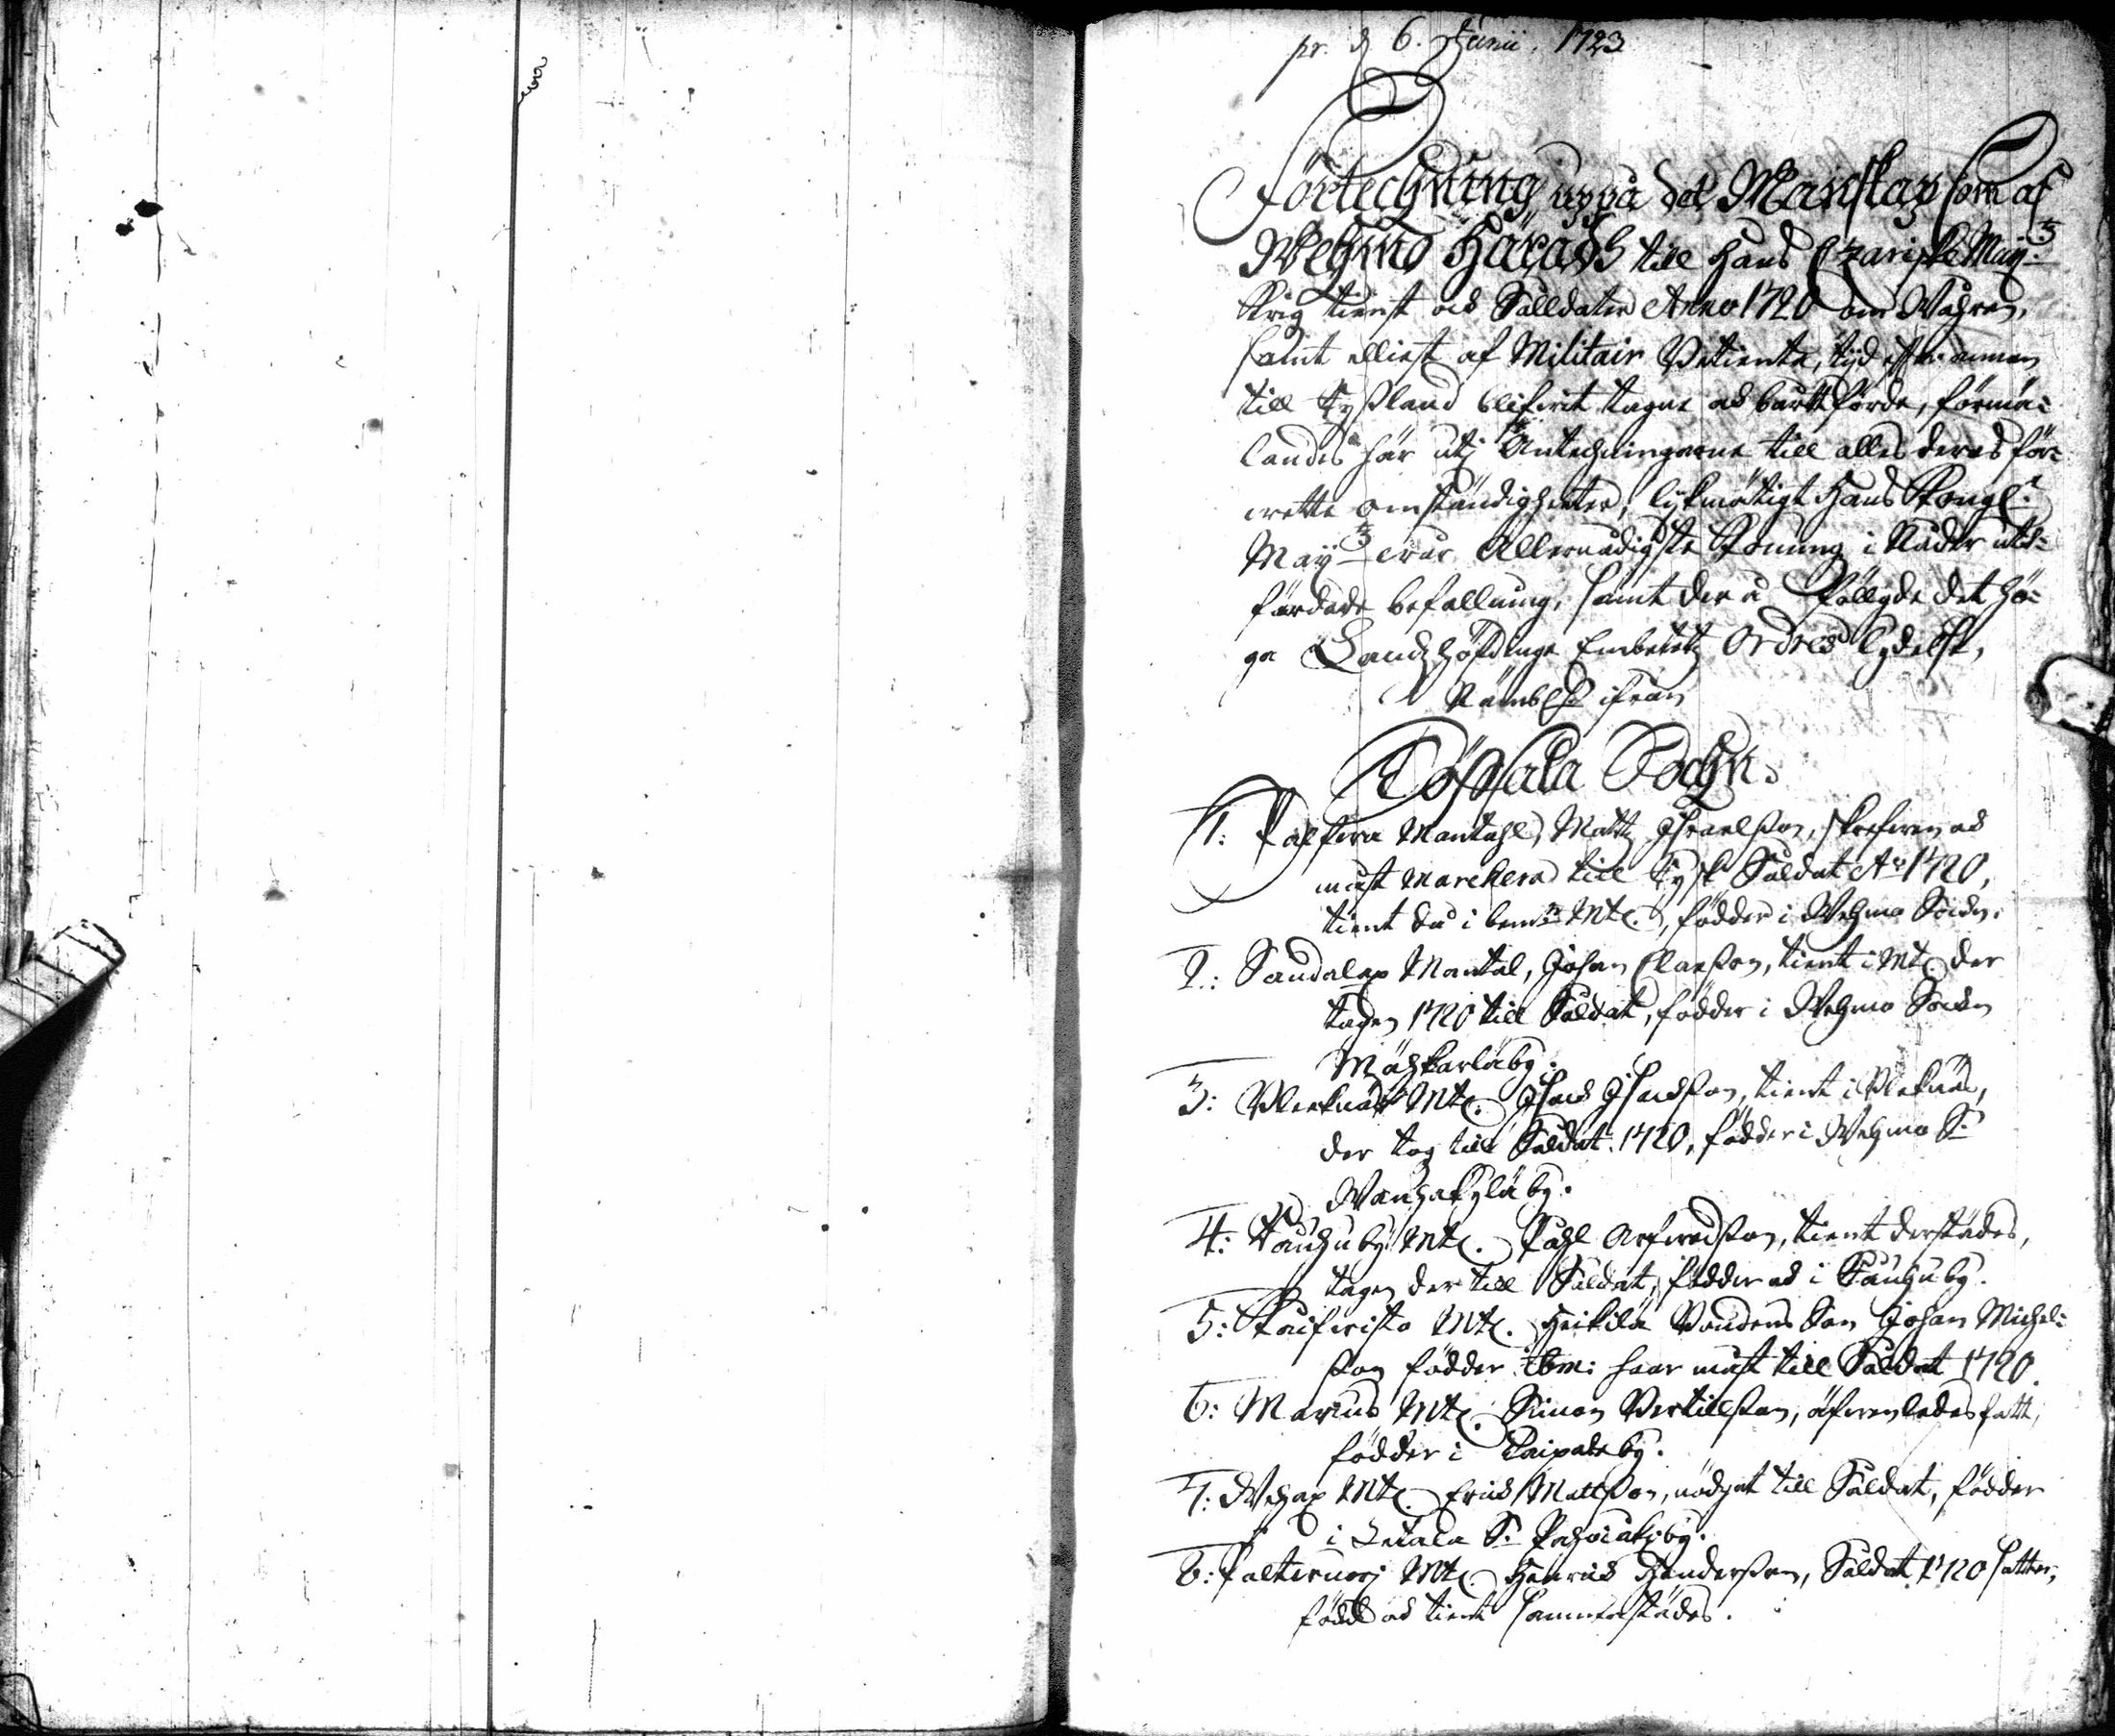 pr. d. 6. Junii. 1723
Förtechning uppå det Manskap som af
Wehmo Härads till Hans Czariske Maij:ts
Krig tienst och Salldater Anno 1720 om Wåhren,
samt elliest af Militair Betiente, tijd effter annan
till Ryssland blifwit tagne och burtförde, förmä:
landes här utj Antechningarne till alles deras för:
rette omständigheeter, lijkmätigt Hans Kongl:e
Maij:ts wår Allernådigste Konung i Nåder utd:
färdade befallning, samt der å föllgde det hö:
ga Landzhöfdinge Embetetz Ordres lydelse,
Nämbl: ifrån
Töfsala Sochn.
1: Palfwa Mantahl, Mattz Israelsson, skrefwen och
måst marchera till Rysk Saldat A:o 1720,
tient då i bem:te Mtl., födder i Wehmo Sochn.
2: Sandalax Mantal, Johan Clarsson, tient i Mtl. der
tagen 1720 till Saldat, födder i Wehmo Sochn
Mäskarlaby:
3: Bleknäs Mtl. Isach Isachsson, tient i Bleknäs,
der tog till Saldat 1720, födder i Wehmo S:n
Wanhakyläby.
4: Kauhu by Mtl. Påhl Arfwedsson, tient derstädes,
tagen der till Saldat, födder och i Kauhu by.
5: Kaifwisto Mtl. Heikilä Bondens Son Johan Michel:
sson födder ibm: haar måst till Saldat 1720.
6: Marius Mtl. Simon Bertillsson, äfwenledes satt,
födder i Taipale by.
7: Wehax Mtl. Erich Mattsson, nödgat till Saldat, födder
i Letala S:n by.
8: Palternorj Mtl. Henrich Hendersson, Saldat 1720 satter,
född och tient sammastädes.